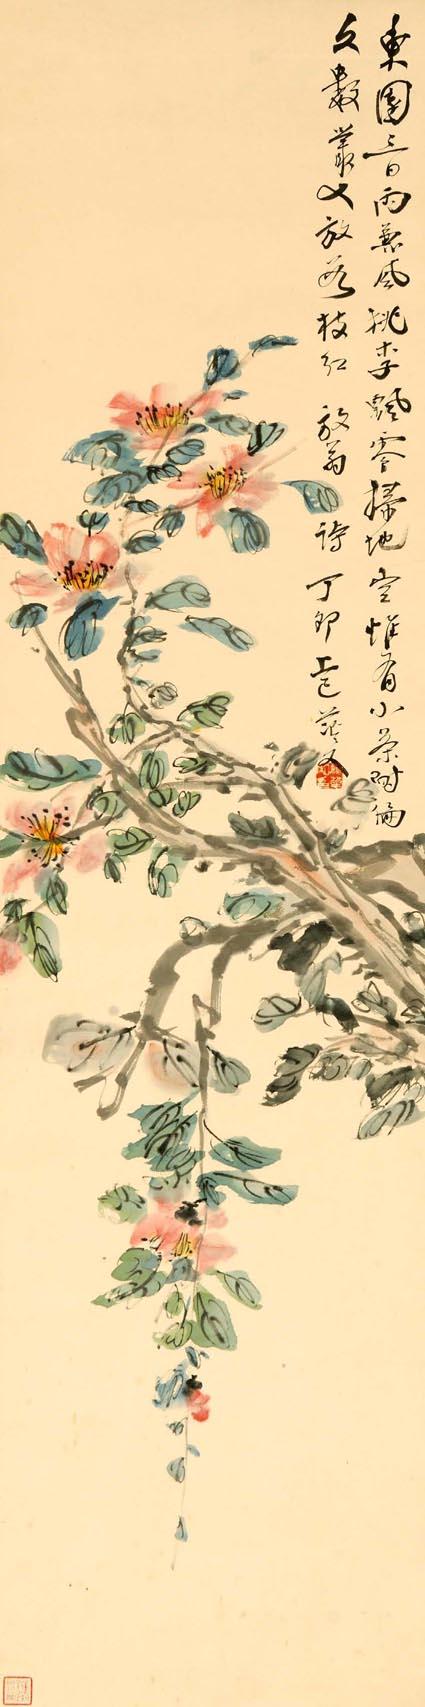 東園三日雨兼風桃李飄零掃地空惟有小茶偏
久數叢又放數枝紅 放翁詩 丁卯